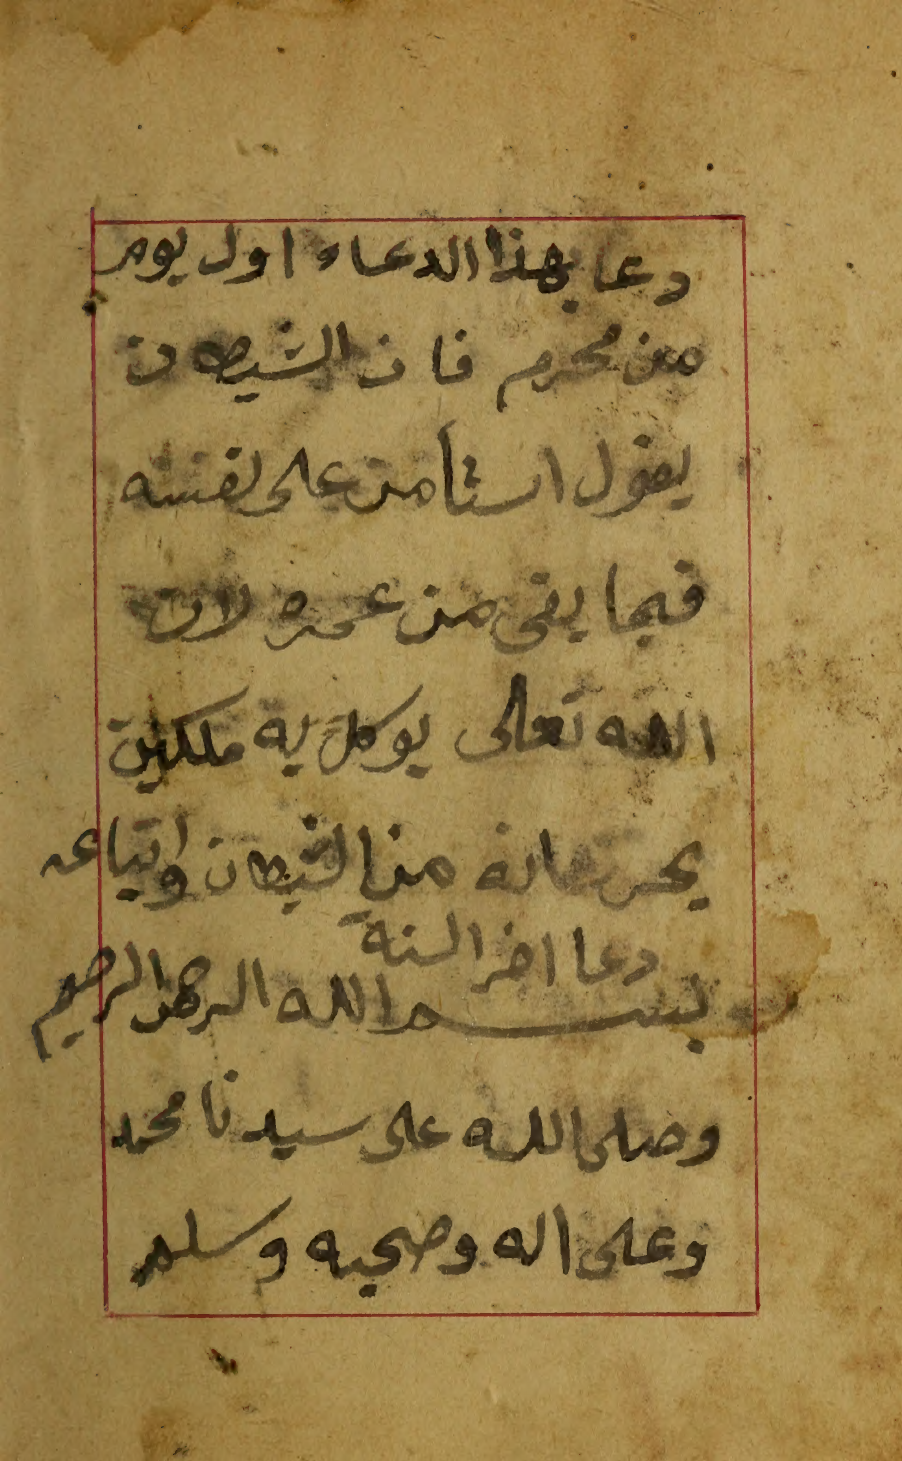 دعا بهذا الدعاء اول يوم
من محرم فان الشيطان
يقول استأمن على نفسه
فيما بقى من عمره لان
الله تعالى يوكل به ملكين
يحرسانه من الشيطان واتباعه
دعا اخر السنة
بسم الله الرحمن الرحيم
وصلى الله على سيدنا محمد
وعلى اله وصحبه وسلم